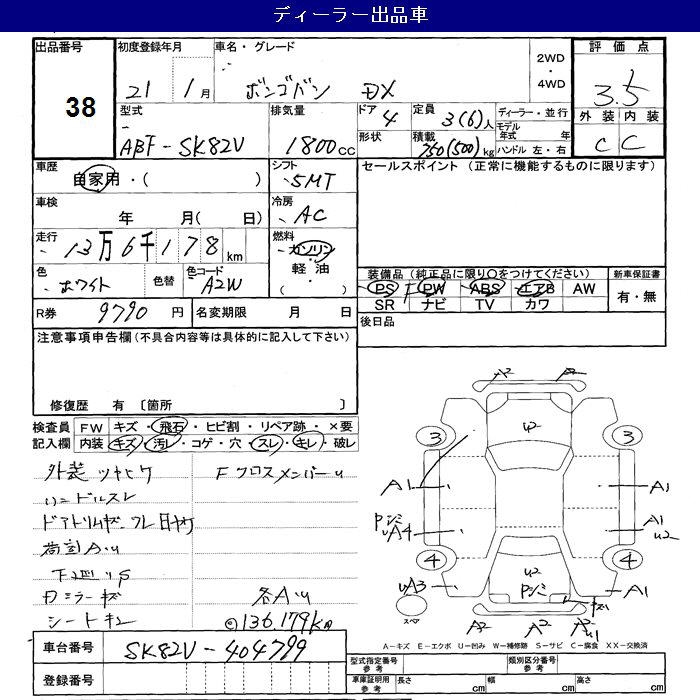 ディーラー出品車
出品番号 38
初度登録年月 21年 1月
車名・グレード ボンゴバン DX
2WD・4WD
評価点 3.5
外装 C 内装 C
型式 ABF-SK82V
排気量 1800cc
ドア 4
形状
定員 3(6)人
積載 750(500)kg
ディーラー・並行
モデル年式 年
ハンドル 左・右
車歴 自家用・( )
シフト 5MT
車検 年 月( 日)
冷房 AC
走行 13万6千178km
燃料 ガソリン・軽油・( )
色 ホワイト
色替
色コード A2W
R券 9790円
名変期限 月 日
セールスポイント (正常に機能するものに限ります)
装備品 (純正品に限り○をつけてください)
PS PW ABS エアB AW
SR ナビ TV カワ
新車保証書 有・無
後日品
注意事項申告欄(不具合内容等は具体的に記入して下さい)
修復歴 有 〔箇所 〕
検査員記入欄
FW キズ・飛石・ヒビ割・リペア跡・×要
内装 キズ・汚レ・コゲ・穴・スレ・キレ・破レ
外装ツヤヒケ Fクロスメンバーu
ハンドルスレ
荷室AU
下廻りS
Dミラーキズ 各AU
シートキレ ©136,179km
車台番号 SK82V-404799
登録番号
A2 A2
U2
3 3
A1 A1
uA4 A1
U2
4 4
uA3 U2 A1
スペア
A2 A2
A-キズ E-エクボ U-凹み W-補修跡 S-サビ C-腐食 XX-交換済
型式指定番号 参考
類別区分番号 参考
車庫証明用 参考
長さ cm 幅 cm 高さ cm